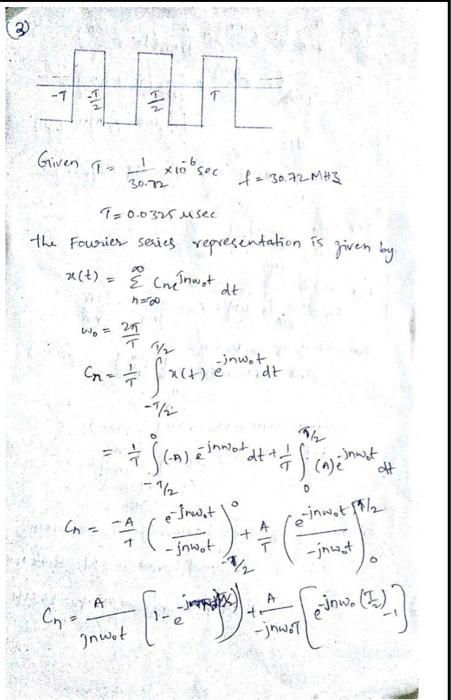 (3)
-T -T/2 T/2 T
Given T = 1/30.72 ×10^-6 sec f = 30.72 MHz
T = 0.0325 μsec
the Fourier series representation is given by
x(t) = ∞ Σ n=∞ Cn e^jnω0t dt
ω0 = 2π/T
Cn = 1/T ∫_{-T/2}^{T/2} x(t) e^{-jnω0t} dt
= 1/T ∫_{-T/2}^{0} (-A) e^{-jnω0t} dt + 1/T ∫_{0}^{T/2} (A) e^{-jnω0t} dt
Cn = -A/T (e^{-jnω0t} / -jnω0t)_{-T/2}^{0} + A/T (e^{-jnω0t} / -jnω0t)_{0}^{T/2}
Cn = A/jnω0t [1 - e + A/-jnω0T [e^{-jnω0(T/2)} -1]